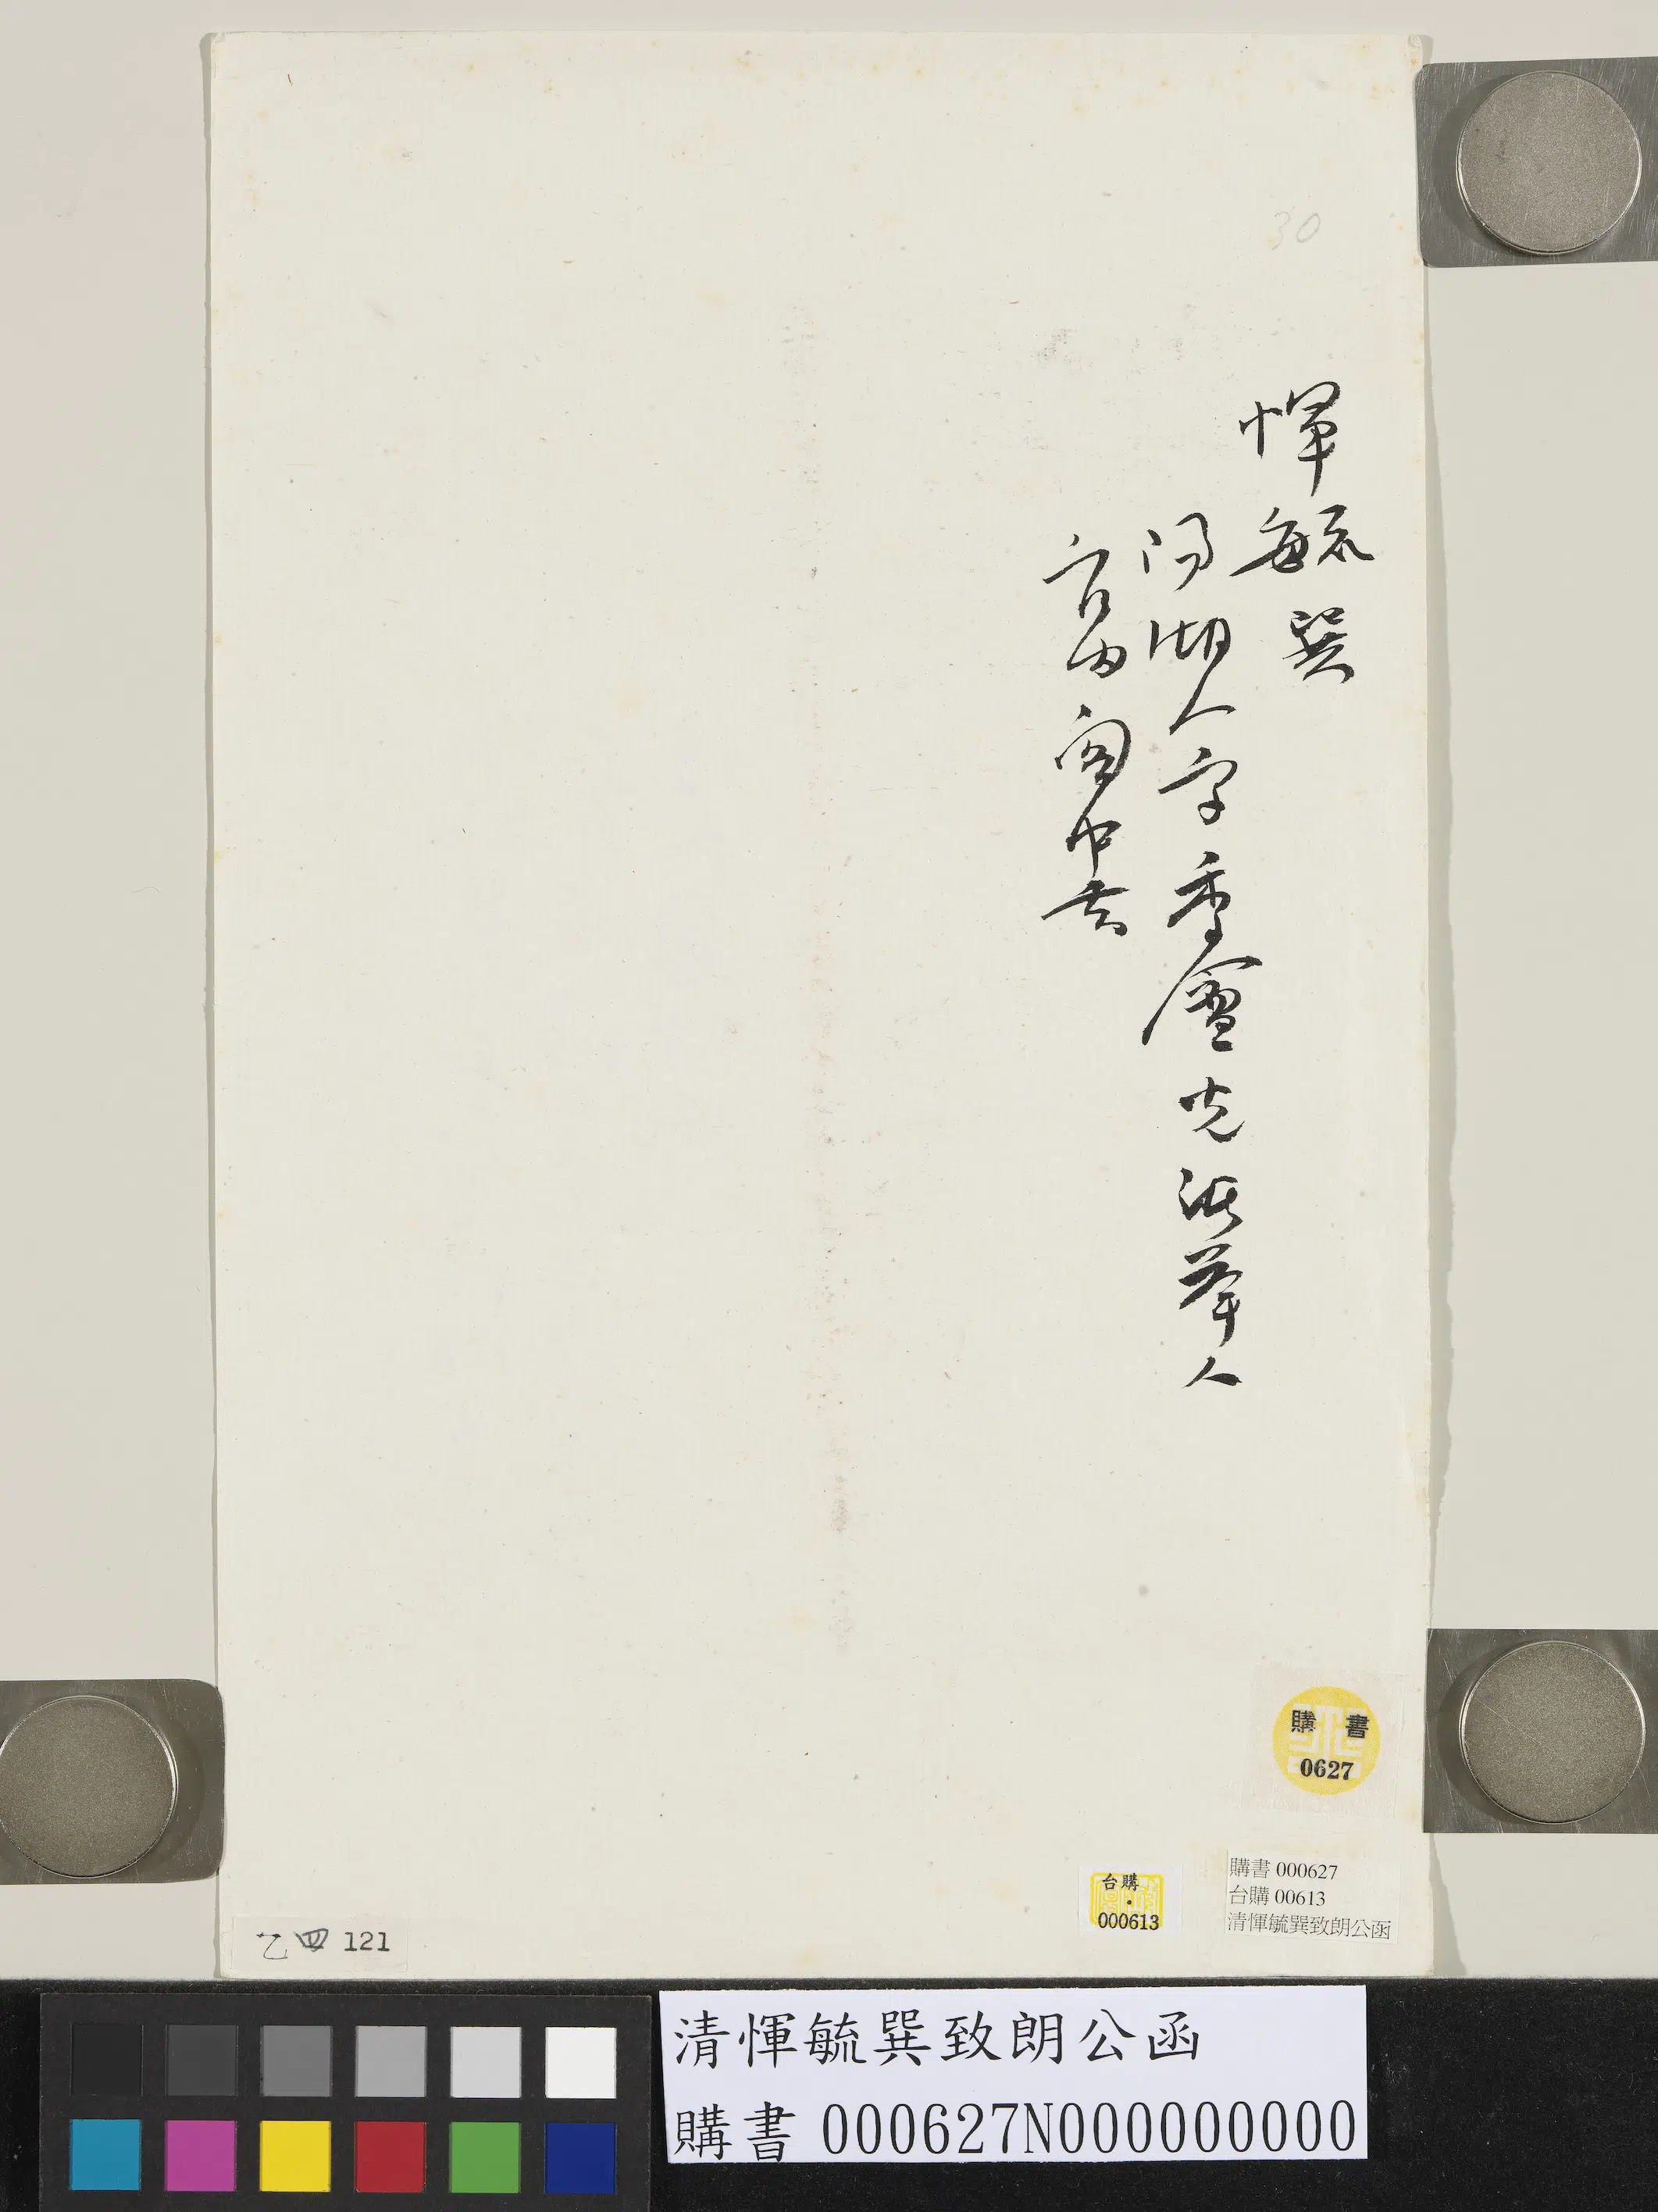 30
惲毓巽
陽湖人字季盦光緒舉人
官內閣中書
購書
0627
台購
000613
購書 000627
台購 00613
清惲毓巽致朗公函
乙四 121
清惲毓巽致朗公函
購書 000627N000000000